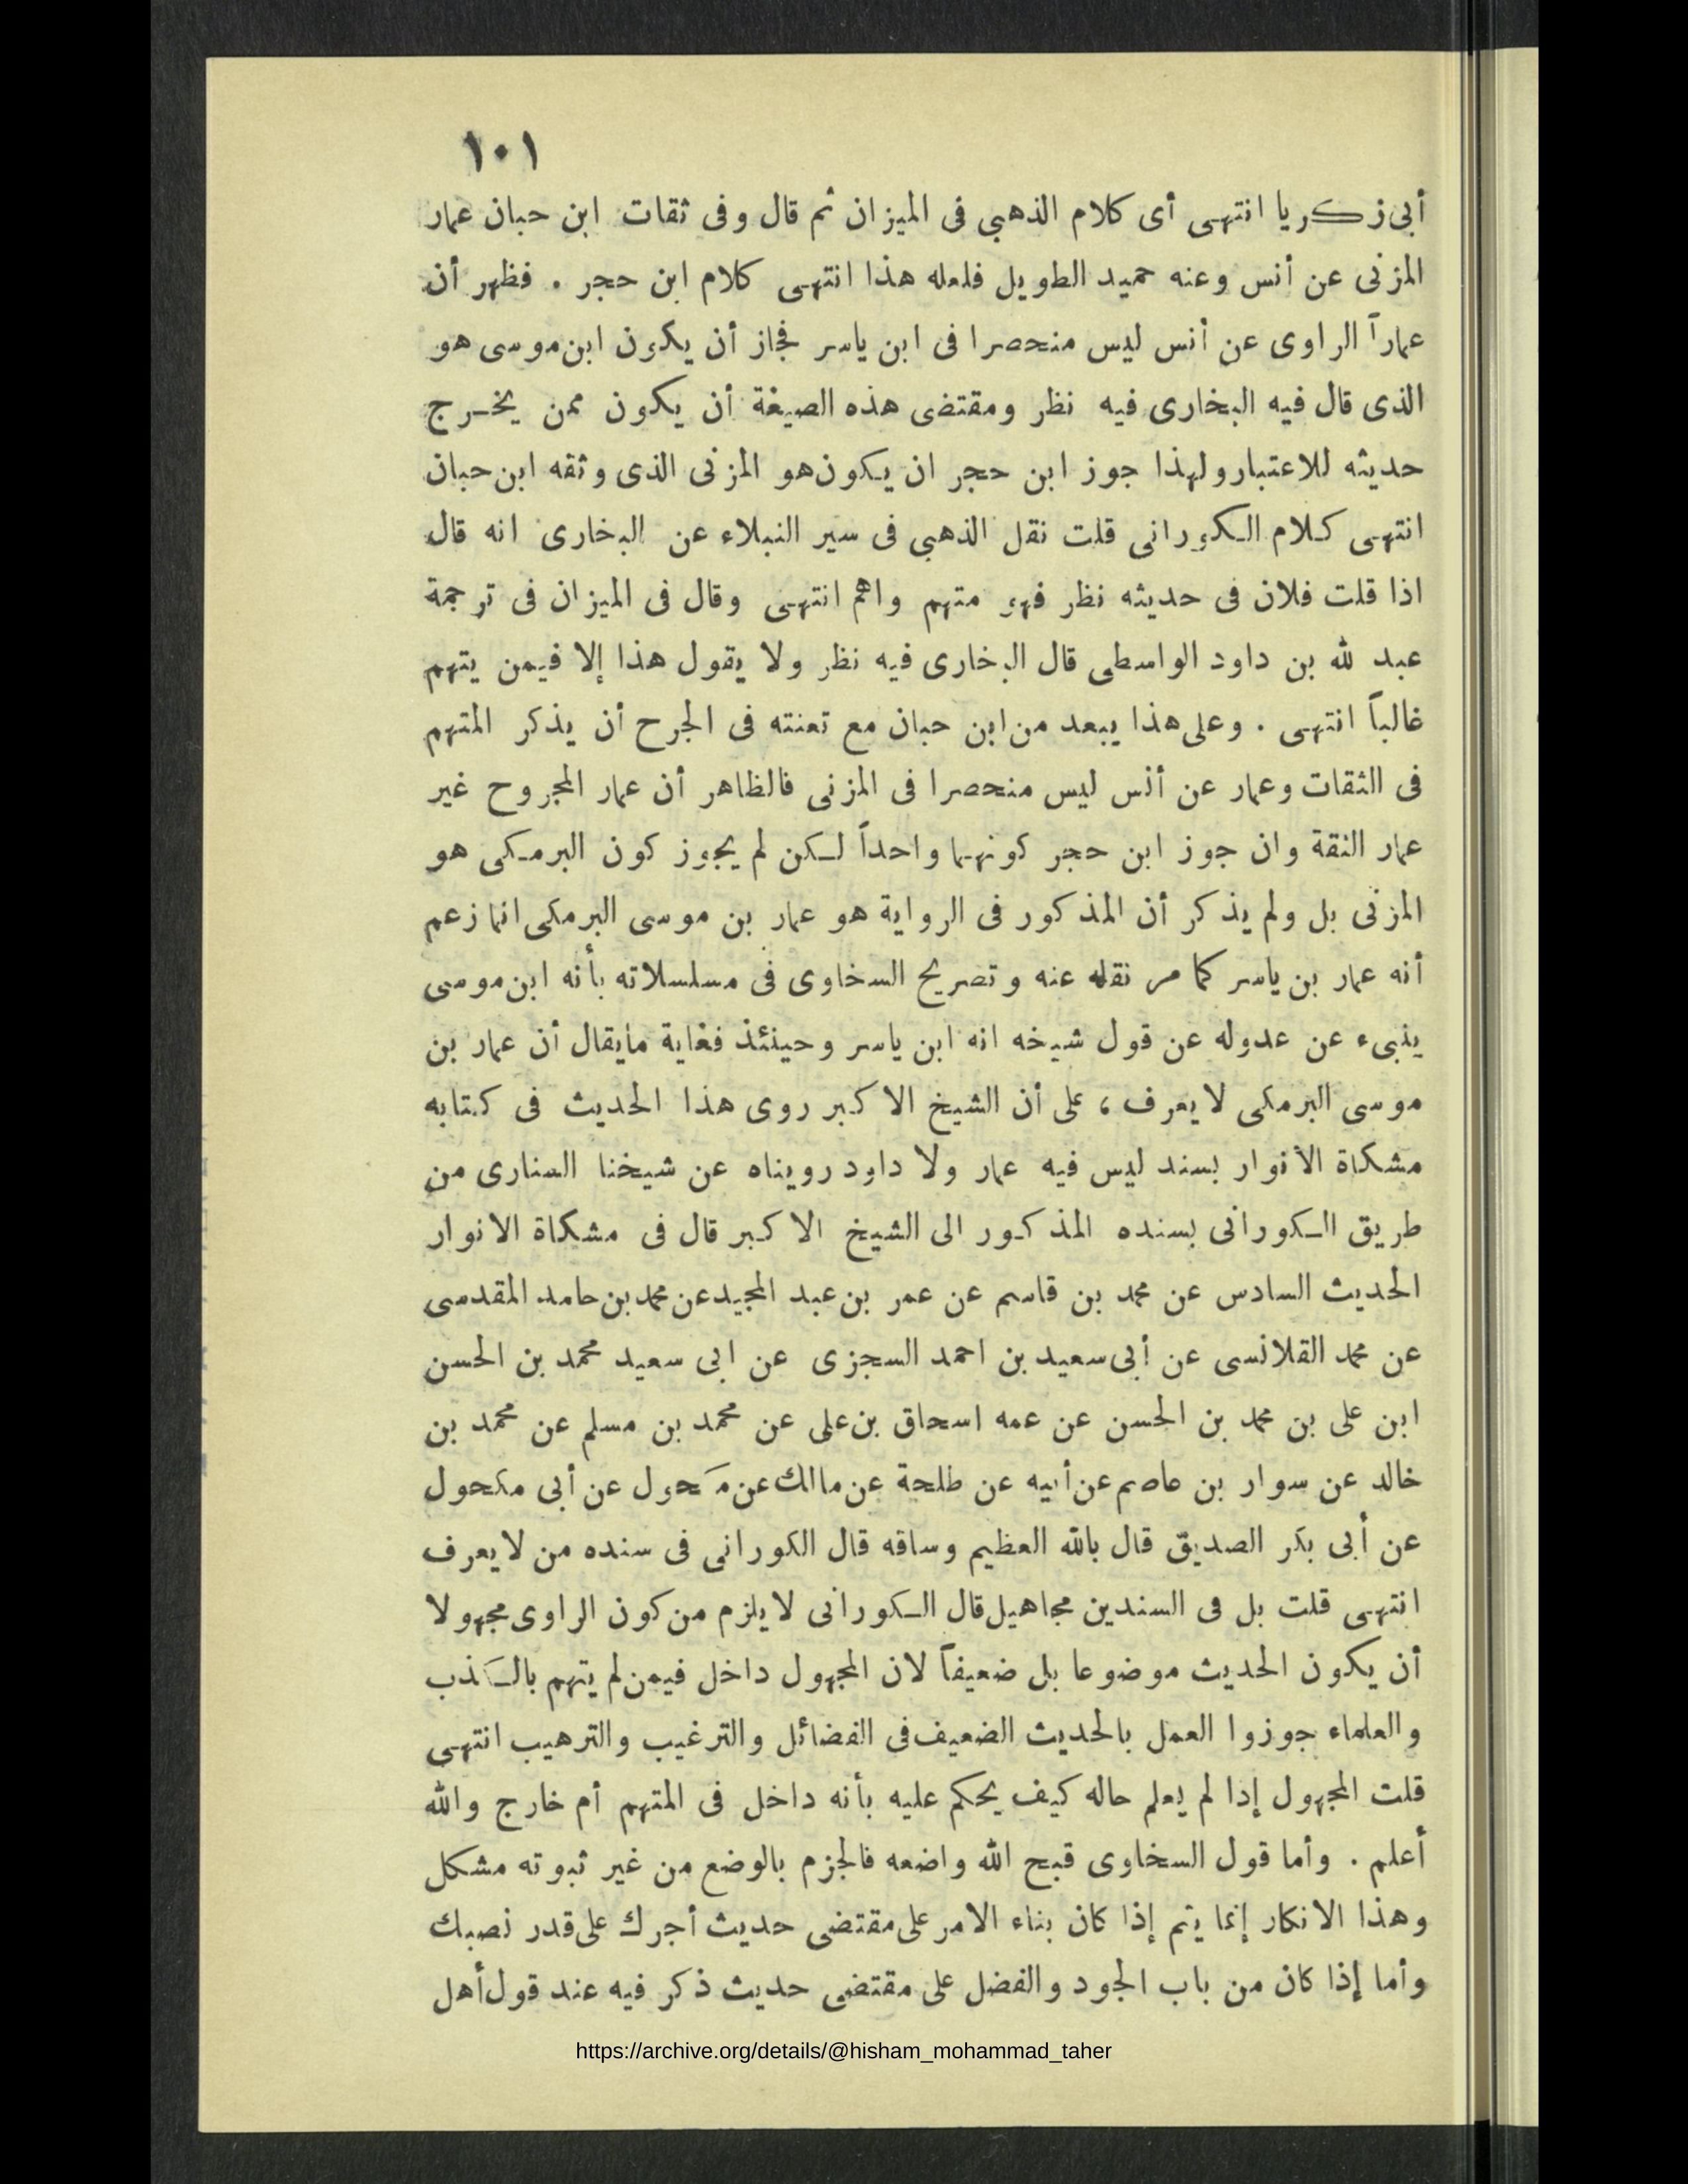 ١٠١
أبى زكريا انتهى أى كلام الذهبي فى الميزان ثم قال وفى ثقات ابن حبان عمار
المزنى عن أنس وعنه حميد الطويل فلعله هذا انتهى كلام ابن حجر . فظهر أن
عماراً الراوى عن أنس ليس منحصرا فى ابن ياسر فجاز أن يكون ابن موسى هو
الذى قال فيه البخارى فيه نظر ومقتضى هذه الصيغة أن يكون ممن يخرج
حديثه للاعتبار ولهذا جوز ابن حجر ان يكون هو المزنى الذى وثقه ابن حبان
انتهى كلام الكورانى قلت نقل الذهبي فى سير النبلاء عن البخارى انه قال
اذا قلت فلان فى حديثه نظر فهو متهم واهم انتهى وقال فى الميزان فى ترجمة
عبد لله بن داود الواسطى قال البخارى فيه نظر ولا يقول هذا إلا فيمن يتهم
غالباً انتهى . وعلى هذا يبعد من ابن حبان مع تعنته فى الجرح أن يذكر المتهم
فى الثقات وعمار عن أنس ليس منحصرا فى المزنى فالظاهر أن عمار المجروح غير
عمار الثقة وان جوز ابن حجر كونهما واحداً لكن لم يجوز كون البرمكى هو
المزنى بل ولم يذكر أن المذكور فى الرواية هو عمار بن موسى البرمكى انما زعم
أنه عمار بن ياسر كما مر نقله عنه وتصريح السخاوى فى مسلسلاته بأنه ابن موسى
ينبىء عن عدوله عن قول شيخه انه ابن ياسر وحينئذ فغاية مايقال أن عمار بن
موسى البرمكى لا يعرف ، على أن الشيخ الاكبر روى هذا الحديث فى كتابه
مشكاة الأنوار بسند ليس فيه عمار ولا داود رويناه عن شيخنا السنارى من
طريق الكورانى بسنده المذكور الى الشيخ الاكبر قال فى مشكاة الانوار
الحديث السادس عن محمد بن قاسم عن عمر بن عبد المجيد عن محمد بن حامد المقدسى
عن محمد القلانسى عن أبى سعيد بن احمد السجزى عن ابى سعيد محمد بن الحسن
ابن على بن محمد بن الحسن عن عمه اسحاق بن على عن محمد بن مسلم عن محمد بن
خالد عن سوار بن عاصم عن أبيه عن طلحة عن مالك عن مكحول عن أبى مكحول
عن أبى بكر الصديق قال بالله العظيم وساقه قال الكورانى فى سنده من لا يعرف
انتهى قلت بل فى السندين مجاهيل قال الكورانى لا يلزم من كون الراوى مجهولا
أن يكون الحديث موضوعا بل ضعيفاً لان المجهول داخل فيمن لم يتهم بالكذب
والعلماء جوزوا العمل بالحديث الضعيف فى الفضائل والترغيب والترهيب انتهى
قلت المجهول إدا لم يعلم حاله كيف يحكم عليه بأنه داخل فى المتهم أم خارج والله
أعلم . وأما قول السخاوى قبح الله واضعه فالجزم بالوضع من غير ثبوته مشكل
وهذا الانكار إنما يتم إذا كان بناء الامر على مقتضى حديث أجرك على قدر نصبك
وأما إذا كان من باب الجود والفضل على مقتضى حديث ذكر فيه عند قول أهل
https://archive.org/details/@hisham_mohammad_taher